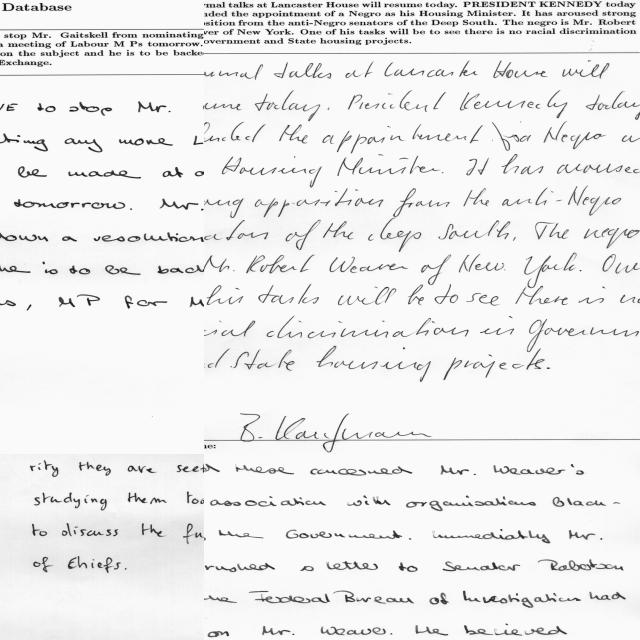 Database
stop Mr. Gaitskell from nominating
a meeting of Labour M Ps tomorrow.
on the subject and he is to be backe
Exchange.
VE to stop Mr.
ting any more L
be made at a
tomorrow. Mr.
down a resolution
he is to be back
s, MP for M
rmal talks at Lancaster House will resume today. PRESIDENT KENNEDY today
ded the appointment of a Negro as his Housing Minister. It has aroused strong
sition from the anti-Negro senators of the Deep South. The negro is Mr. Robert
ver of New York. One of his tasks will be to see there is no racial discrimination
overnment and State housing projects.
rmal talks at Lancaster House will
ume today. President Kennedy today
ended the appointment of a Negro as
Housing Minister. It has aroused
ng opposition from the anti-Negro
ators of the deep South. The negro
Mr. Robert Weaver of New York. One
his tasks will be to see there is no
cial discrimination in Governm
d State housing projects.
B. Kaufmann
me:
rity they are seed
studying them too
to discuss the fu
of Chiefs.
these concerned Mr. Weaver's
association with organisations Black-
the Government. Immediatly Mr.
rushed a letter to Senator Robertson
he Federal Bureau of Investigation had
on Mr. Weaver. He believed